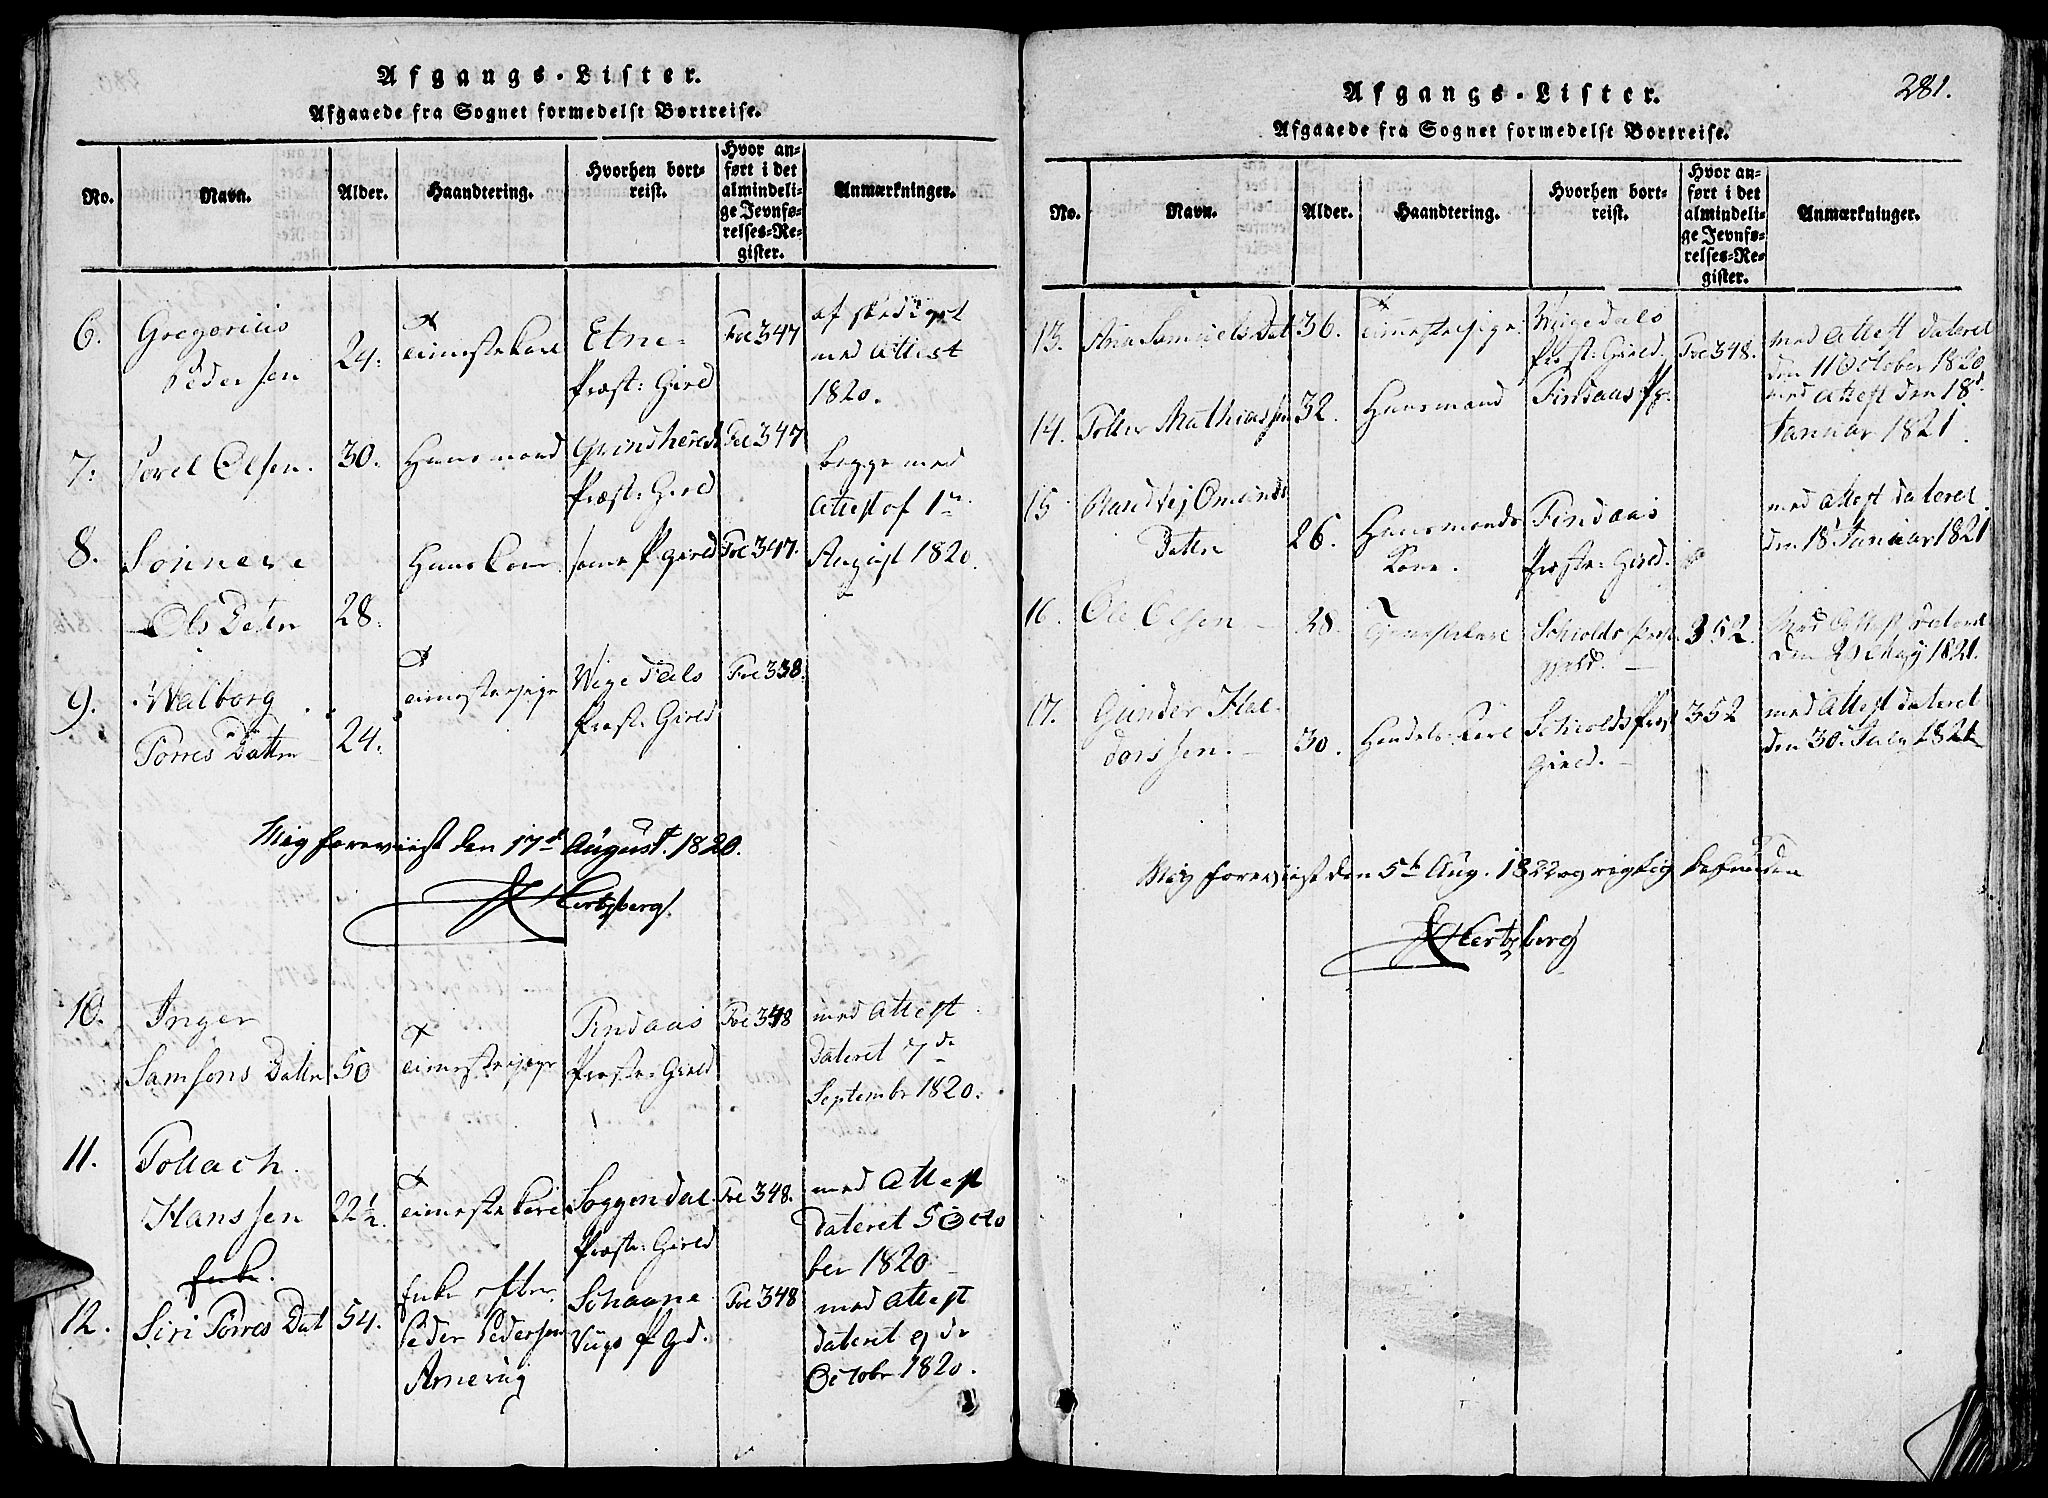 Afgangs-Lister.
Afgaaede fra Sognet formedelst Bortreise.
No. Navn. Alder. Haandtering. Hvorhen bortreist. Hvor anført i det almindelige Jevnførelses-Register. Anmærkninger.
6. Gregorius
Pedersen 24. Etne
Præst: Gield Fol 347
med Attest
1820.
7. Olsen. 30. Huusmand
Præst: Gield Fol 347
begge med
Attest of 1
August 1820.
8. Sønneve
Ols Datter 28. samme P gield Fol 347.
9. Walborg
Torres Datter 24. tienestepige
Præst: Gield Fol 338.
Mig foreviist den 17d August. 1820.
Hertzberg.
10. Inger
Samsons Datter 50 tienestepige Findaas
Præste: Gield Fol 348 med Attest
dateret 7de
September 1820.
11. Tollach
Hanssen 22½. tienestekarl Soggendal
Præste: Gield Fol 348. med Attest
dateret 5 Octo
ber 1820
Enke
12. Siri Torres Dat 54. Enke efter
Peder Pedersen Fol 348 med Attest
dateret 9 de
Octobr 1820.
281.
Afgangs-Lister.
Afgaaede fra Sognet formedelst Bortreise.
No. Navn. Alder. Haandtering. Hvorhen bortreist. Hvor anført i det almindelige Jevnførelses-Register. Anmærkninger.
13. Ana Samuels Dat 36. tienestepige
Præst: Gield. Fol 348. med Attest dateret
den 11 October 1820
14. Mathiassen 32. Huusmand Findaas Pg. med Attest den 18d
Januar 1821.
15
Datter 26. Huusmands
Kone. Findaas
Præste: Gield. med Attest dateret
den 18 Januar 1821
16. Ole Olsen 28. Tienestekarl Schiolds Præst
gield. 352. Med Attest dateret
den May 1821.
17. Gunder Hal
dorssen. 30. Handels Karl Schiolds Præst
Gield. 352 med Attest dateret
den 30. July 1821
Mig foreviist den 5t Aug. 1822 og rigtig befunden
Hertzberg